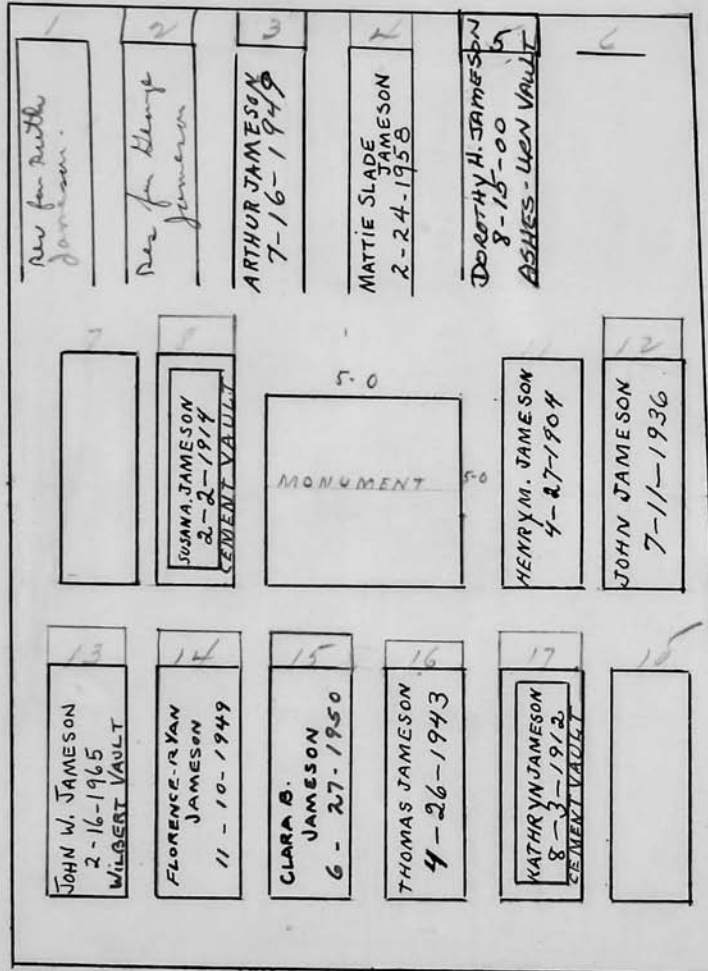 1
Res for Ruth
Jameson.
2
Res for George
Jameson
3
ARTHUR JAMESON
7-16-1949
4
MATTIE SLADE
JAMESON
2-24-1958
5
DOROTHY H. JAMESON
8-15-00
ASHES-URN VAULT
6
7
8
SUSAN A. JAMESON
2-2-1914
CEMENT VAULT
5-0
MONUMENT
5-0
11
HENRY M. JAMESON
4-27-1904
12
JOHN JAMESON
7-11-1936
13
JOHN W. JAMESON
2-16-1965
WILBERT VAULT
14
FLORENCE-RYAN
JAMESON
11-10-1949
15
CLARA B.
JAMESON
6-27-1950
16
THOMAS JAMESON
4-26-1943
17
KATHRYN JAMESON
8-3-1912
CEMENT VAULT